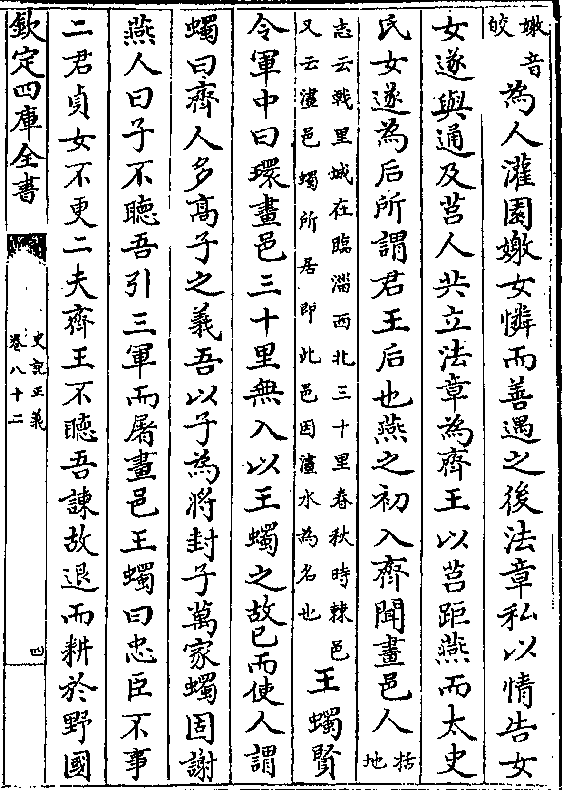 嬓音
皎
為人灌園嬓女憐而善遇之後法章私以情告女
女遂與通及莒人共立法章為齊王以莒距燕而太史
民女遂為后所謂君王后也燕之初入齊聞畫邑人
括
地
志云㦸里城在臨淄西北三十里春秋時棘邑
又云澅邑蠋所居即此邑因澅水為名也
王蠋賢
令軍中曰環畫邑三十里無入以王蠋之故已而使人謂
蠋曰齊人多髙子之義吾以子為將封子萬家蠋固謝
燕人曰子不聽吾引三軍而屠畫邑王蠋曰忠臣不事
二君貞女不更二夫齊王不聽吾諫故退而耕於野國
欽定四庫全書
史記正義
卷八十二
四